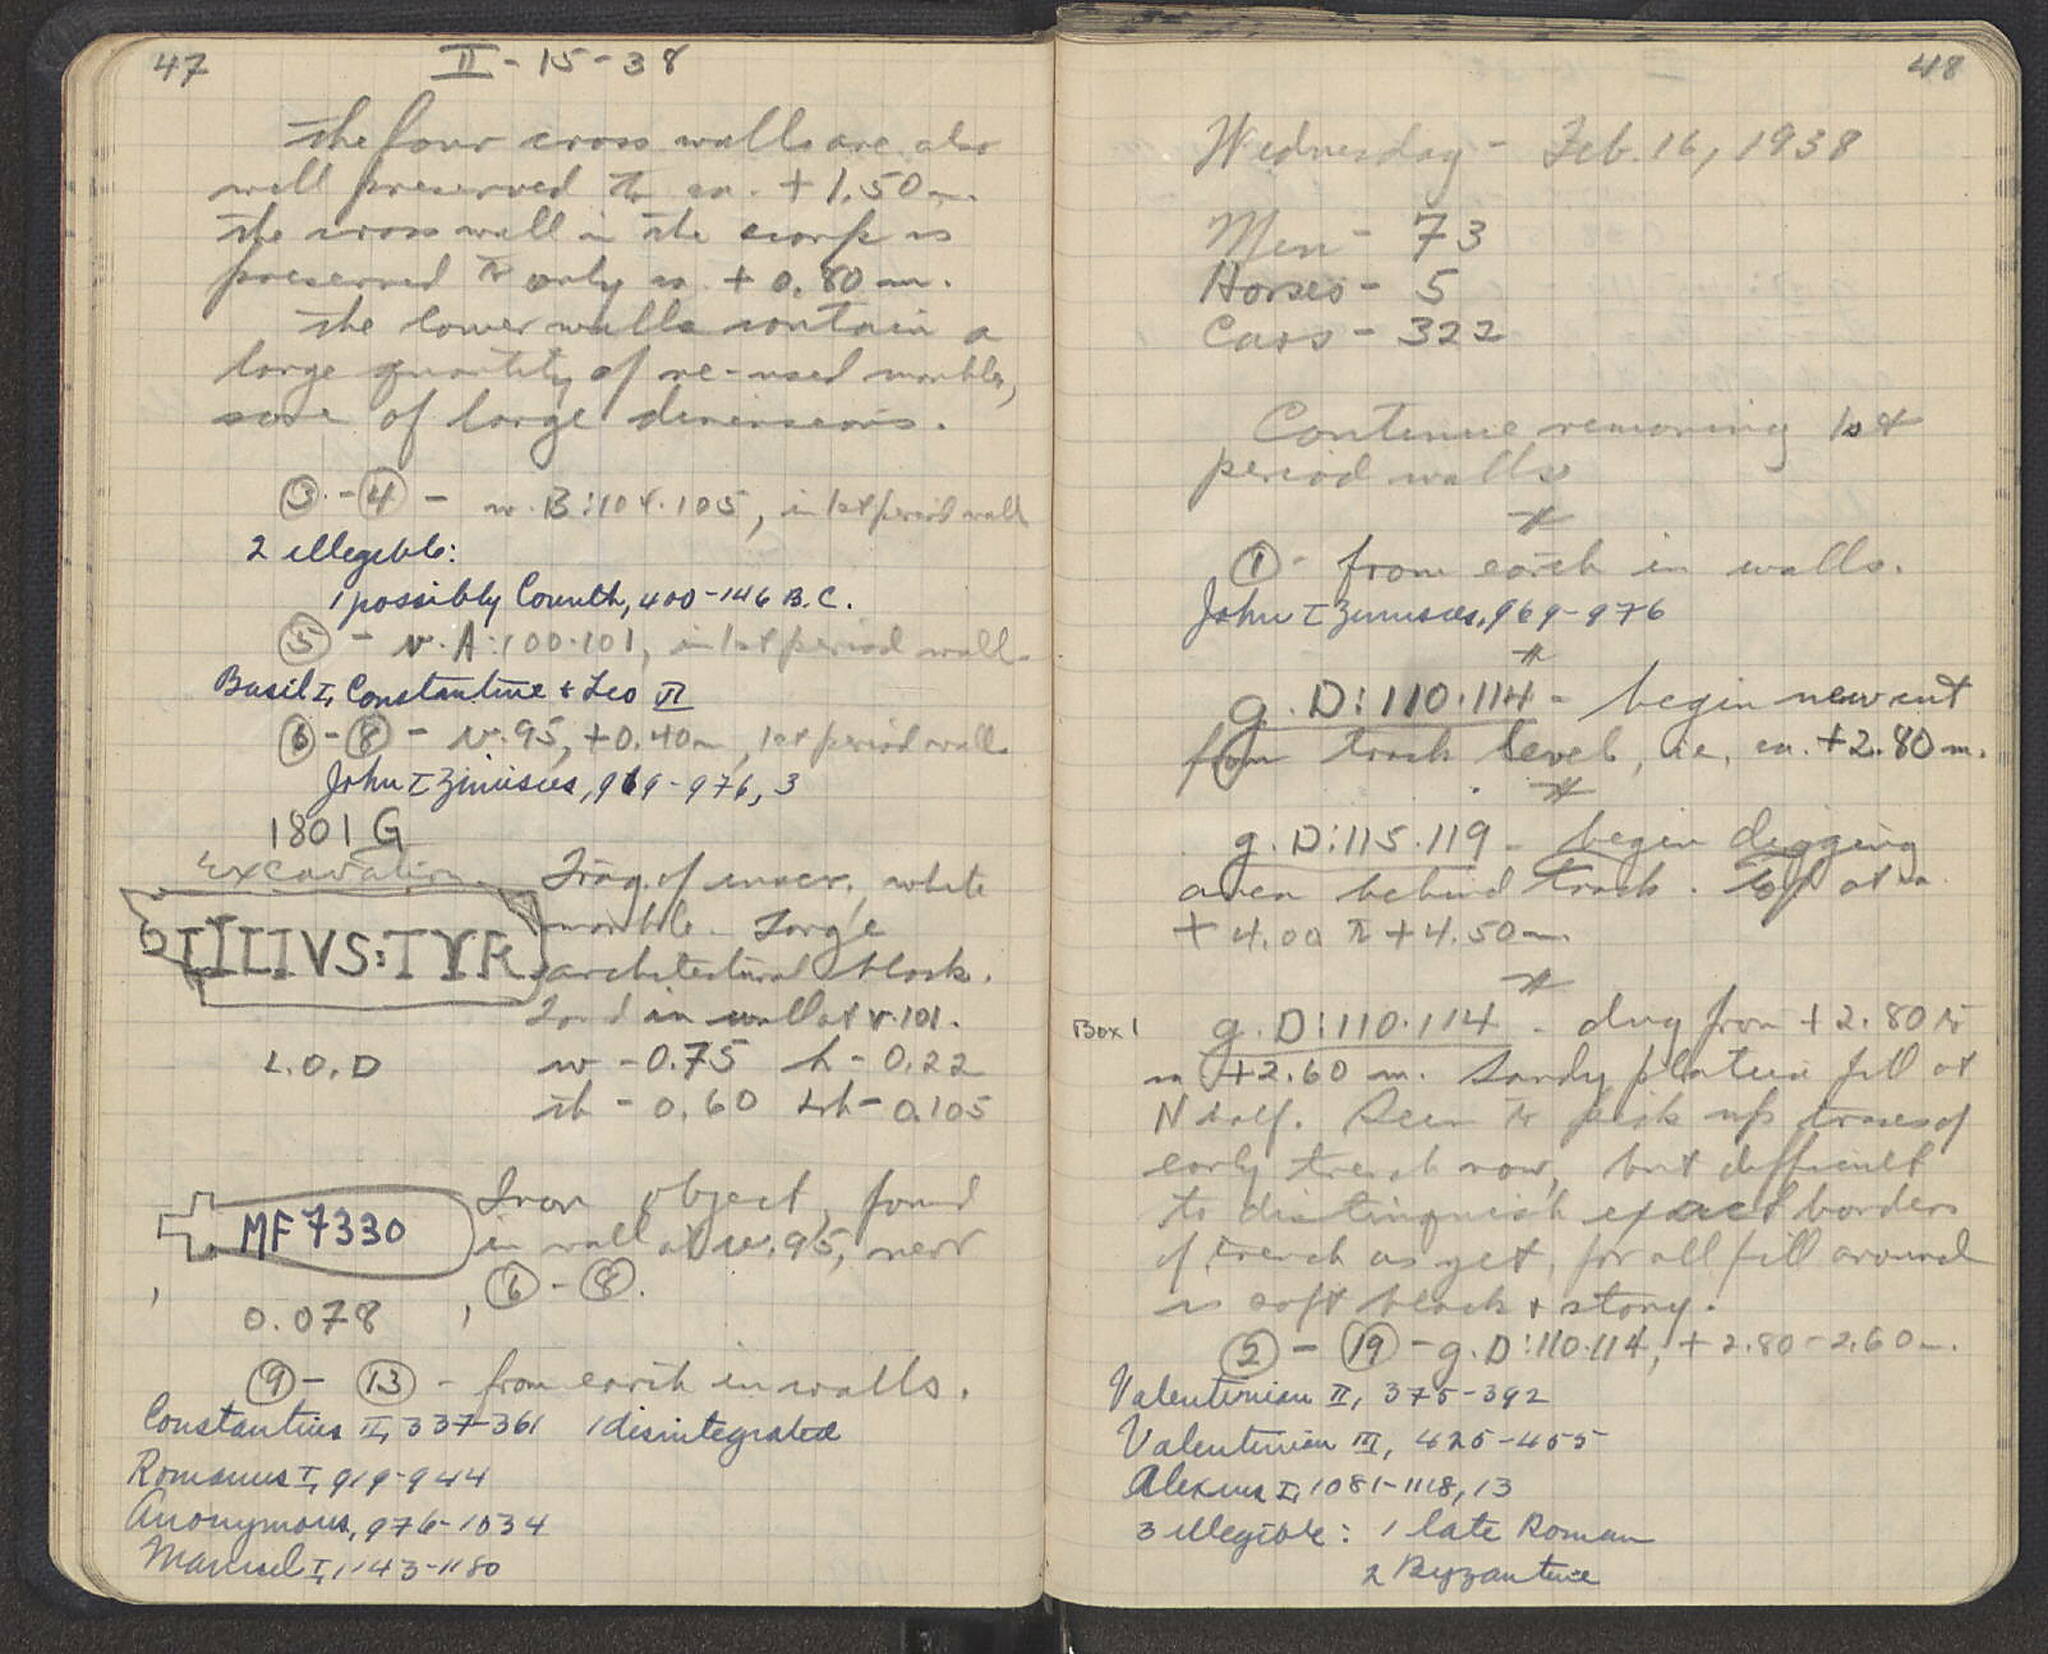 47
II - 15 - 38
The four cross walls are also
well preserved to ca. + 1.50 m.
The cross wall in the scarp is
preserved to only ca. + 0.80 m.
The lower walls contain a
large quantity of re-used marble,
some of large dimensions.
③ - ④ - w. B:104.105, in 1st period walls
2 illegible:
1 possibly Corinth, 400-146 B.C.
⑤ - v. A:100.101, in 1st period wall
Basil I, Constantine & Leo VI
⑥ - ⑧ - v. 95, +0.40m, 1st period wall
John I Zimisces, 969-976, 3
1801 G
Excavation
ILIVS:TYR
Frag. of inscr., white
marble. Large
architectural block.
Found in wall at v.101.
L.O.D
w - 0.75 h - 0.22
th - 0.60 Lh - 0.105
MF 7330
Iron object, found
in wall at v.95, near
⑥ - ⑧.
0.078
⑨ - ⑬ - from earth in walls.
Constantius II, 337-361 1 disintegrated
Romanus I, 919-944
Anonymous, 976-1034
Manuel I, 1143-1180
48
Wednesday - Feb. 16, 1938
Men - 73
Horses - 5
Cars - 322
Continue removing 1st
period walls
①- from earth in walls.
John I Zimisces, 969-976
g. D:110.114 - begin new cut
from track level, i.e., ca. +2.80 m.
g. D:115.119 - begin digging
area behind track. Top at ca.
+ 4.00 to +4.50 m.
Box 1
g. D:110.114 - dug from +2.80 to
ca +2.60 m. Sandy fill at
N half. Seem to pick up traces of
early trench now, but difficult
to distinguish exact borders
of trench as yet, for all fill around
is soft black & stony.
② - ⑲ - g. D:110.114, +2.80-2.60m.
Valentinian II, 375-392
Valentinian III, 425-455
Alexius I, 1081-1118, 13
3 illegible: 1 late Roman
2 Byzantine